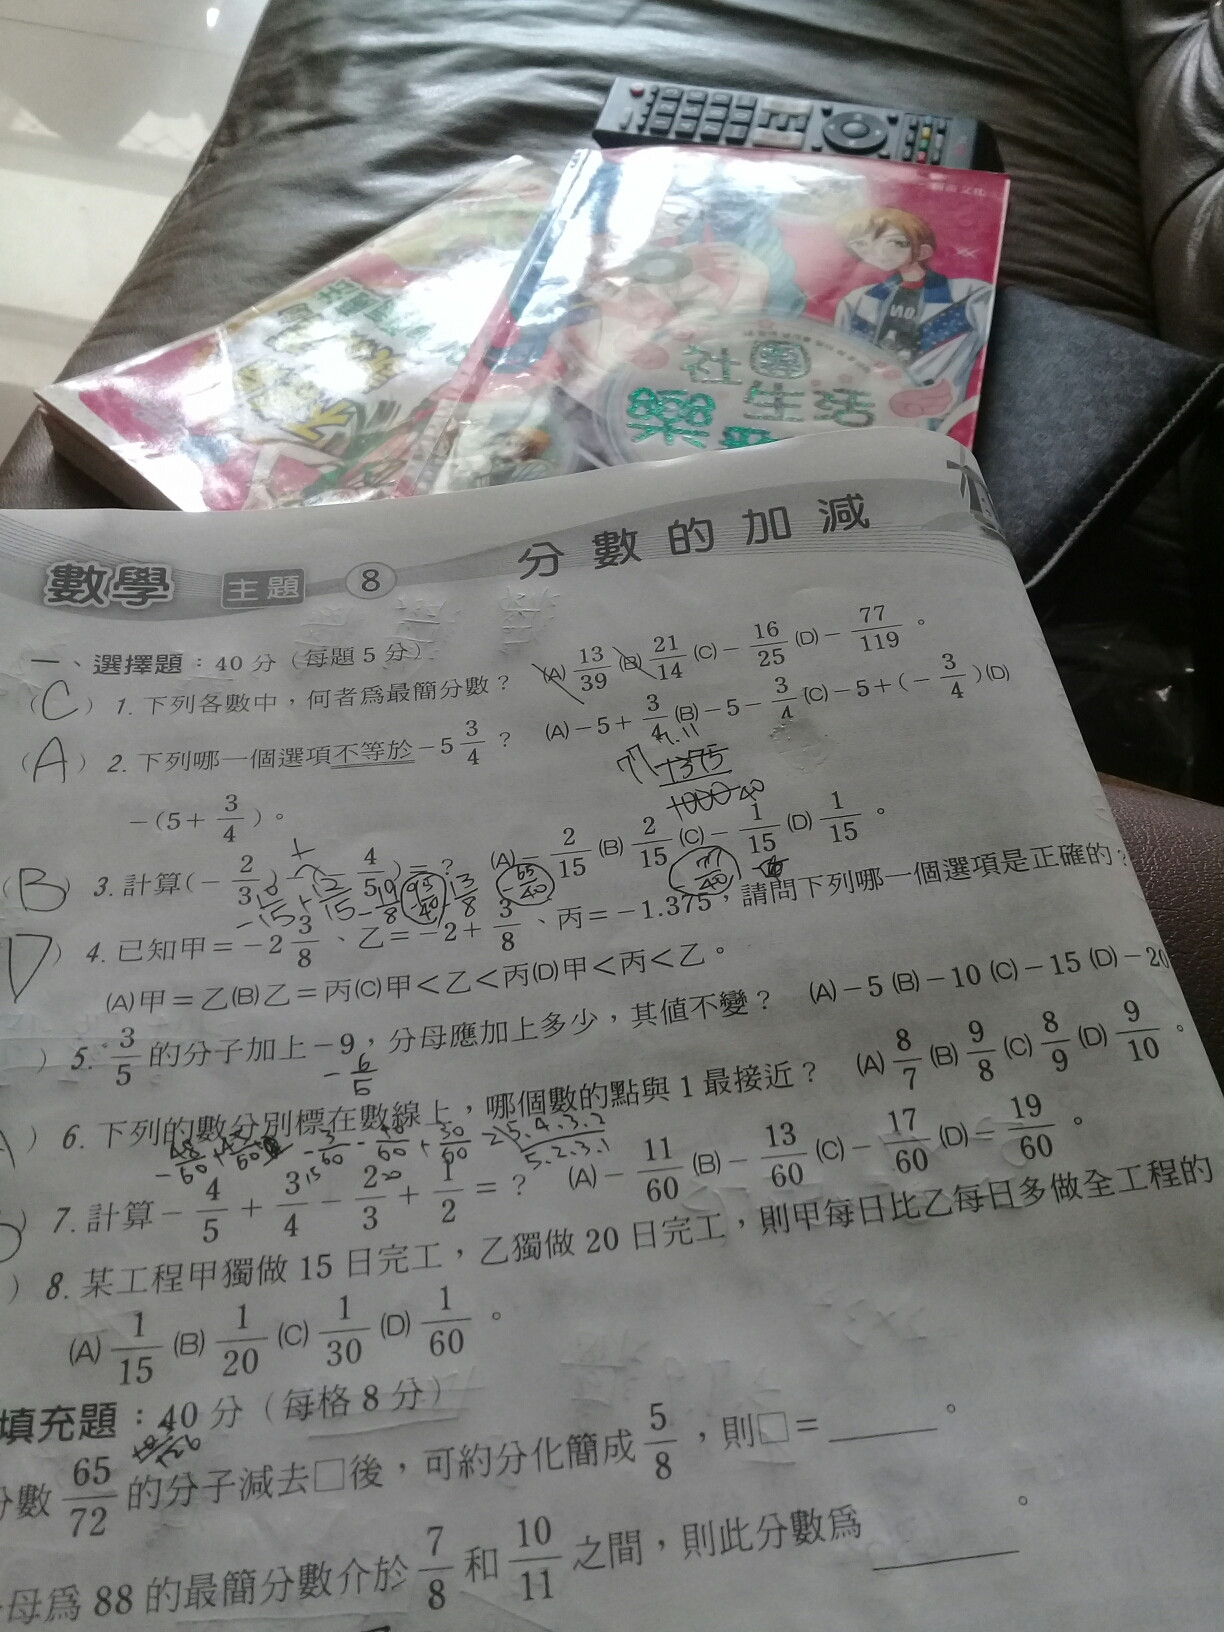 社團
生活
數學 主題 8 分數的加減
一、選擇題：40分（每題5分）
（C）1. 下列各數中，何者為最簡分數？ (A) 13/39 (B) 21/14 (C) －16/25 (D) －77/119。
（A）2. 下列哪一個選項不等於－5 3/4？ (A)－5＋3/4 (B)－5－3/4 (C)－5＋(－3/4) (D)
－(5＋3/4)。
（B）3. 計算(－2/3)－(－4/5)＝？ (A)－2/15 (B) 2/15 (C)－1/15 (D) 1/15。
D ）4. 已知甲＝－2 3/8、乙＝－2＋3/8、丙＝－1.375，請問下列哪一個選項是正確的？
(A)甲＝乙(B)乙＝丙(C)甲＜乙＜丙(D)甲＜丙＜乙。
）5. 3/5 的分子加上－9，分母應加上多少，其值不變？ (A)－5 (B)－10 (C)－15 (D)－20
－6/5
）6. 下列的數分別標在數線上，哪個數的點與1最接近？ (A) 8/7 (B) 9/8 (C) 8/9 (D) 9/10。
）7. 計算－4/5＋3/4－2/3＋1/2＝？ (A)－11/60 (B)－13/60 (C)－17/60 (D)－19/60。
）8. 某工程甲獨做15日完工，乙獨做20日完工，則甲每日比乙每日多做全工程的
(A) 1/15 (B) 1/20 (C) 1/30 (D) 1/60。
填充題：40分（每格8分）
數 65/72 的分子減去□後，可約分化簡成 5/8，則□＝＿＿＿。
母為88的最簡分數介於 7/8 和 10/11 之間，則此分數為＿＿＿。